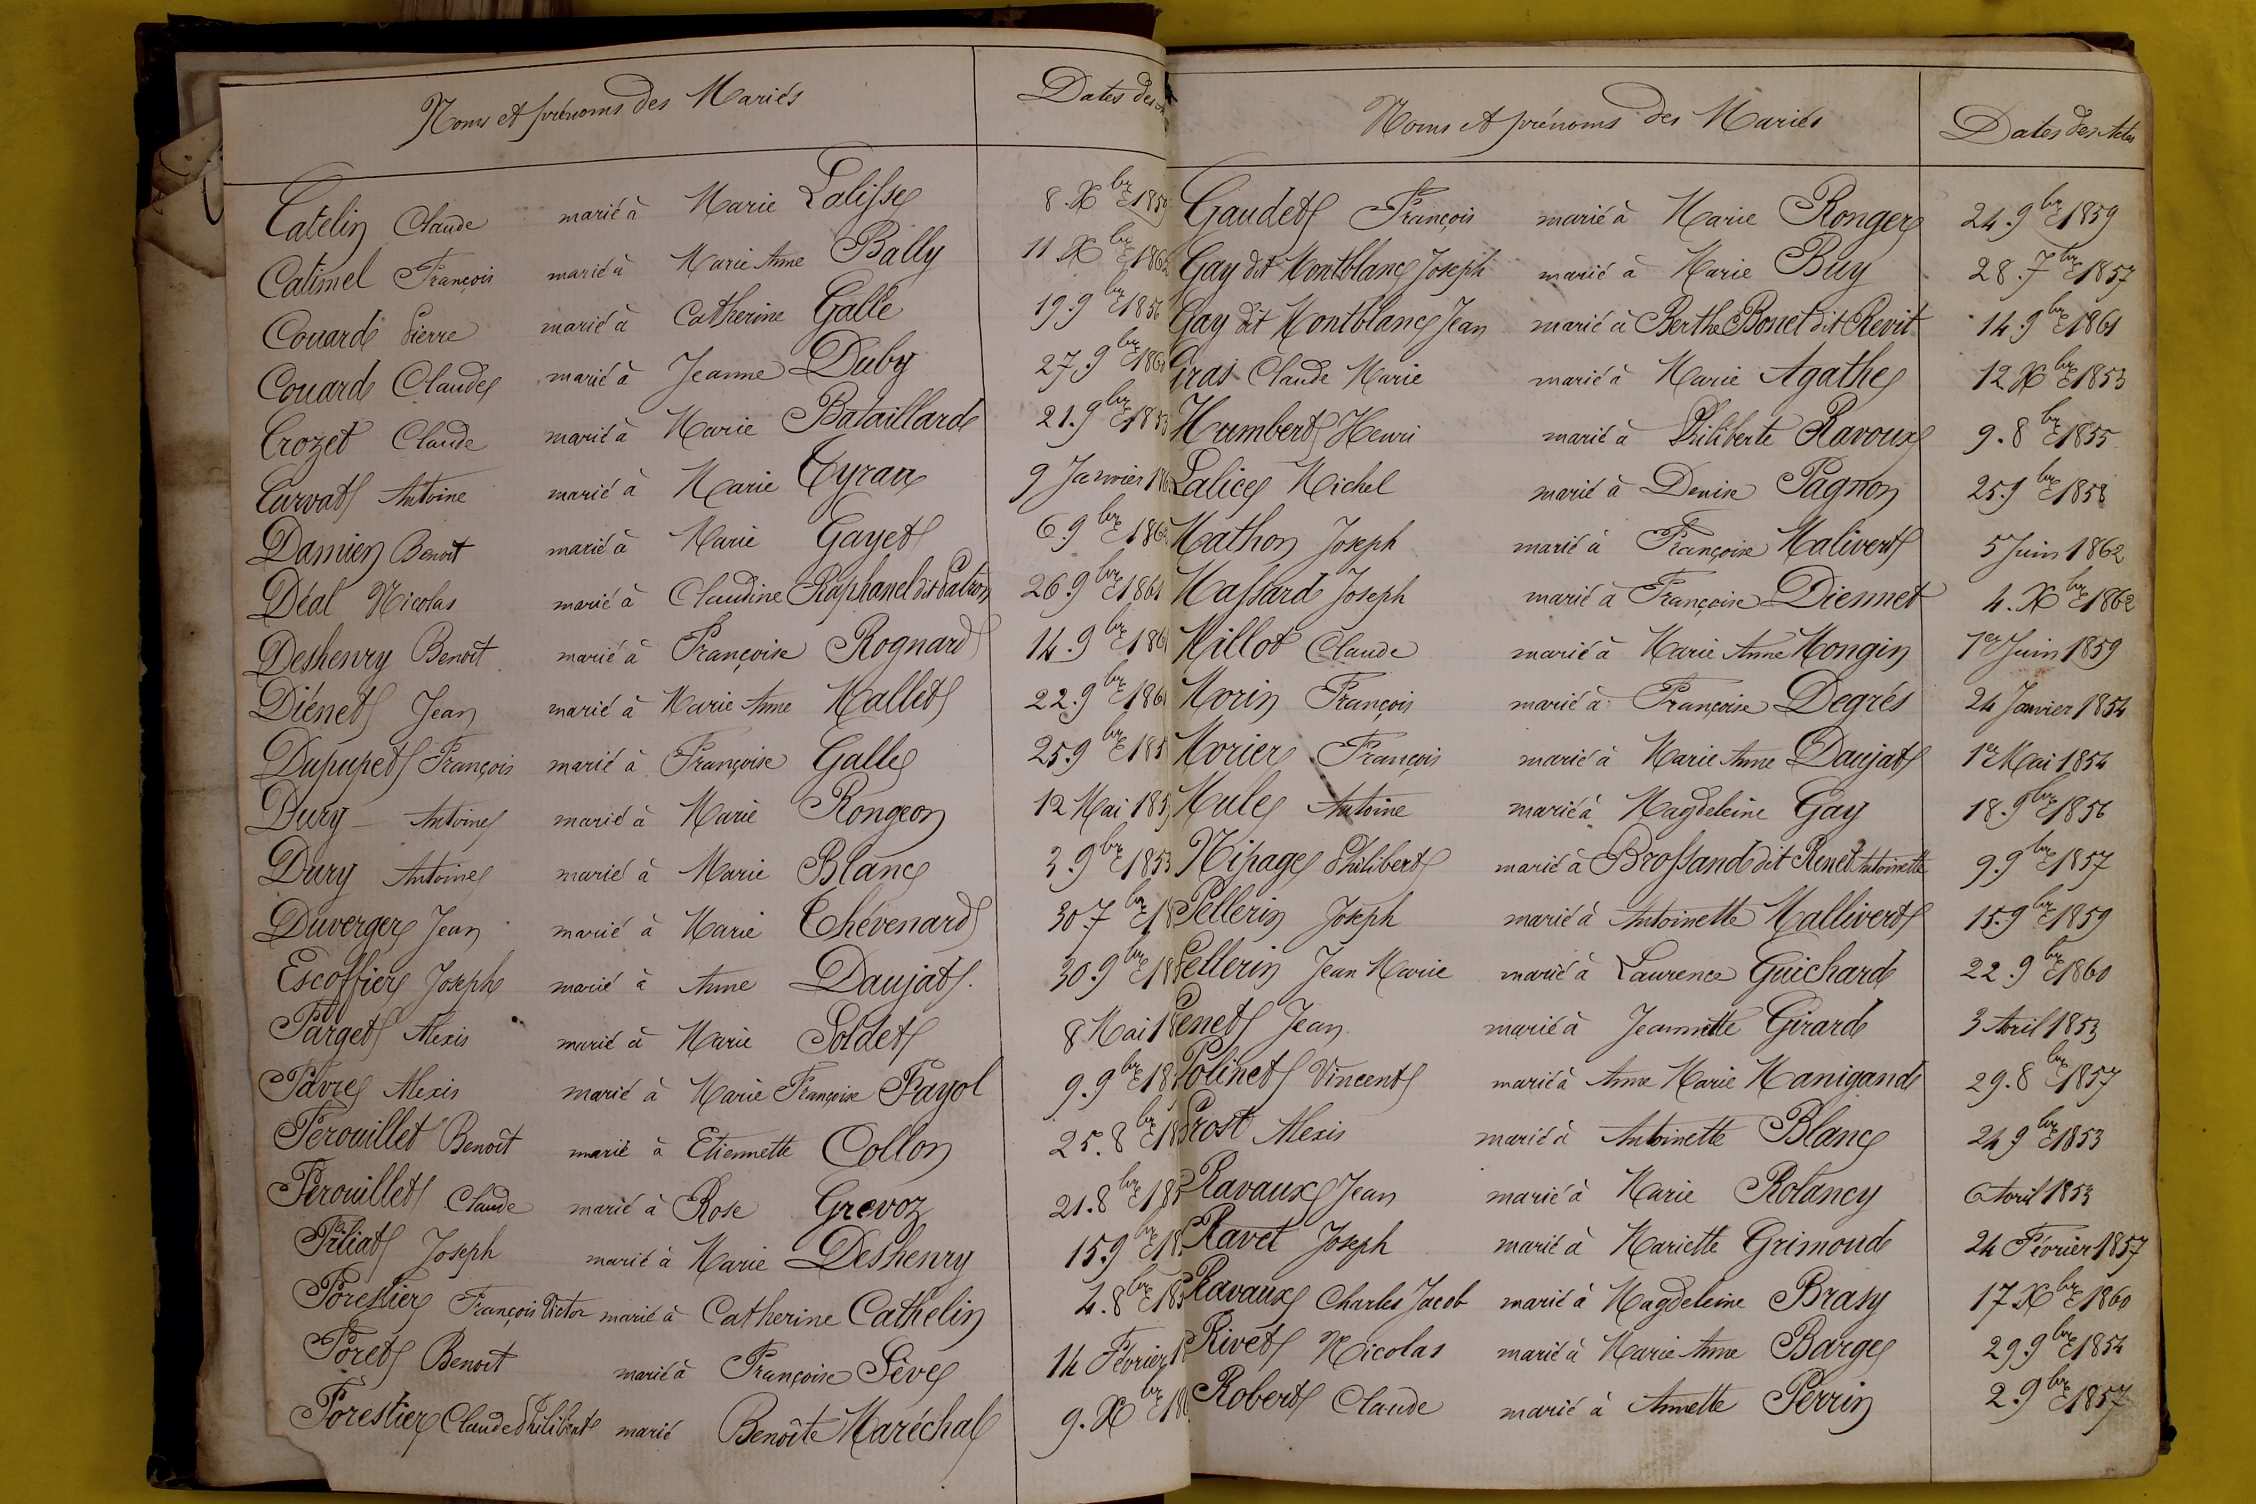 Noms et prénoms des Mariés Dates des
Catelin Claude marié à Marie Lalisse 8. Xbre 185
Catimel François marié à Marie Anne Bally 11 Xbre 1862
Couard Pierre marié à Catherine Galle 19. 9bre 1856
Couard Claude marié à Jeanne Duby 27. 9bre 186
Crozet Claude marié à Marie Bataillard 21. 9bre 1853
Curvat Antoine marié à Marie Cyran 9 Janvier
Damien Benoit marié à Marie Gayet 6. 9bre 186
Déal Nicolas marié à Claudine Raphanel dit Patron 26. 9bre 1861
Deshenry Benoit marié à Françoise Rognard 14. 9bre 186
Diénet Jean marié à Marie Anne Mallet 22. 9bre 186
Dupupet François marié à Françoise Galle 25. 9bre 185
Dury Antoine marié à Marie Rongeon 12 Mai 185
Dury Antoine marié à Marie Blanc 3. 9bre 1853
Duverger Jean marié à Marie Thévenard 30. 7bre 18
Escoffier Joseph marié à Anne Daujat. 30. 9bre 18
Farget Alexis marié à Marie Soldet 8 Mai 18
Favre Alexis marié à Marie Françoise Fayol 9. 9bre 18
Ferouillet Benoit marié à Etiennette Collon 25. 8bre 18
Ferouillet Claude marié à Rose Grevoz 21. 8bre 185
Filiat Joseph marié à Marie Deshenry 15. 9bre 18
Forestier François Victor marié à Catherine Cathelin 4. 8bre 185
Foret Benoit marié à Françoise Sève 14 Février 1
Forestier Claude Philibert marié Benoite Maréchal 9. Xbre 186
Noms et prénoms des Mariés Dates des Actes
Gaudet François marié à Marie Ronger 24. 9bre 1859
Gay dit Montblanc Joseph marié à Marie Buy 28. 7bre 1857
Gay dit Montblanc Jean marié à Berthe Bonet dit Revit 14. 9bre 1861
Gras Claude Marie marié à Marie Agathe 12 Xbre 1853
Humbert Henri marié à Philiberte Ravoux 9. 8bre 1855
Lalice Michel marié à Denise Pagnon 25. 9bre 1858
Mathon Joseph marié à Françoise Malivert 5 Juin 1862
Massard Joseph marié à Françoise Diennet 4. Xbre 1862
Millot Claude marié à Marie Anne Mongin 1er Juin 1859
Morin François marié à Françoise Degrés 24 Janvier 1854
Morier François marié à Marie Anne Daujat 1er Mai 1854
Mule Antoine marié à Magdeleine Gay 18. 9bre 1856
Nipage Philibert marié à Brossand dit Renet Antoinette 9. 9bre 1857
Pellerin Joseph marié à Antoinette Mallivert 15. 9bre 1859
Pellerin Jean Marie marié à Laurence Guichard 22. 9bre 1860
Penet Jean marié à Jeannette Girard 3 Avril 1853
Polinet Vincent marié à Anne Marie Manigand 29. 8bre 1857
Prost Alexis marié à Antoinette Blanc 24 9bre 1853
Ravaux Jean marié à Marie Rolancy 6 Avril 1853
Ravet Joseph marié à Mariette Grimoud 24 Février 1857
Ravaux Charles Jacob marié à Magdeleine Brasy 17 Xbre 1860
Rivet Nicolas marié à Marie Anne Barge 29. 9bre 1854
Robert Claude marié à Annette Perrin 2. 9bre 1857